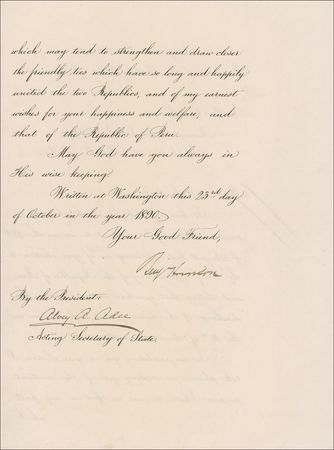 which may tend to strengthen and draw closer
the friendly ties which have so long and happily
united the two Republics, and of my earnest
wishes for your happiness and welfare, and
that of the Republic of Peru.
May God have you always in
His wise keeping.
Written at Washington this 23rd day
of October in the year 1890.
Your Good Friend,
Benj Harrison
By the President:
Alvey A. Adee
Acting Secretary of State.